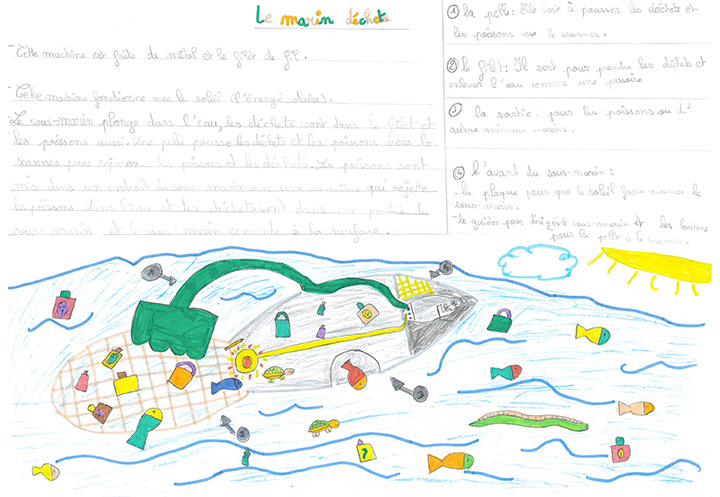 Le marin déchets
- Cette machine est faite de métal et le filet de fil.
- Cette machine fonctionne avec le soleil (l'Energie solaire).
Le sous-marin plonge dans l'eau, les déchets vont dans le filet et
les poissons aussi. Une pelle pousse les déchets et les poissons vers le
scanner pour séparer les poissons et les déchets. Les poissons sont
mis dans un endroit du sous-marin avec une qui rejette
les poissons dans l'eau et les déchets vont dans une partie du
sous-marin et le sous-marin remonte à la surface.
① la pelle : Elle sert à pousser les déchets et
les poissons vers le scanner.
② le filet : Il sert pour prendre les déchets et
enlever l'eau comme une passoire
③ la sortie : pour les poissons ou d'
autres animaux marins.
④ l'avant du sous-marin :
- la plaque pour que le soleil fasse avancer le
sous-marin.
- le guidon pour diriger le sous-marin et les boutons
pour la pelle et le scanner.